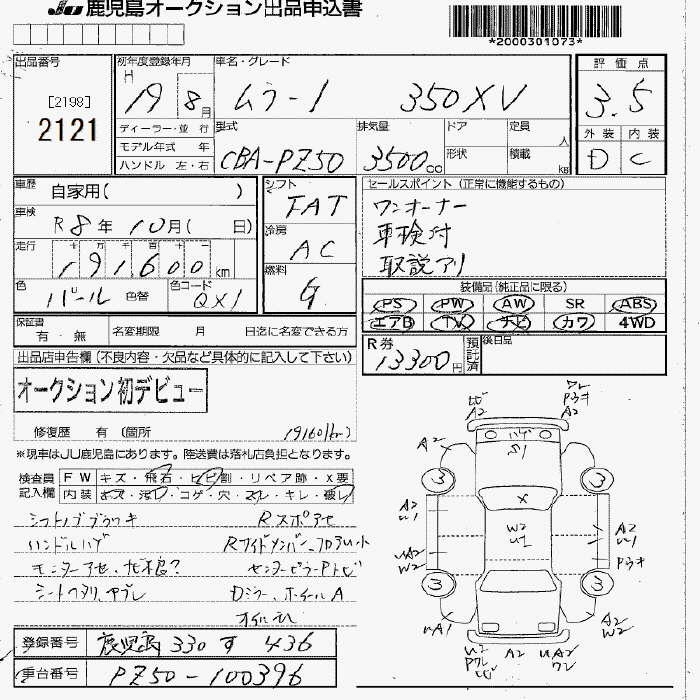 JU 鹿児島オークション出品申込書
*2000301073*
出品番号
[2198]
2121
初年度登録年月
H 19 8月
車名・グレード
ムラーノ 350XV
評価点
3.5
外装 内装
D C
ディーラー・並行
モデル年式 年
ハンドル 左・右
型式
CBA-PZ50
排気量
3500cc
ドア
形状
定員 人
積載 kg
車歴
自家用( )
車検
R8年10月( 日)
走行
十 万 千 百 十
191600km
色
パール 色替
色コード
QX1
シフト
FAT
冷房
AC
燃料
G
セールスポイント(正常に機能するもの)
ワンオーナー
車検付
取説アリ
装備品(純正品に限る)
PS PW AW SR ABS
エアB TV ナビ カワ 4WD
保証書
有・無
名変期限 月 日迄に名変できる方
R券
13300円
預託済
後日品
出品店申告欄(不良内容・欠品など具体的に記入して下さい)
オークション初デビュー
修復歴 有(箇所
※現車はJU鹿児島にあります。陸送費は落札店負担となります。
検査員記入欄
FW キズ・飛石・ヒビ割・リペア跡・X要
内装 コゲ・穴・スレ・キレ・破レ
シフトノブブワキ
Rスポアセ
ハンドルハゲ
モニターアセ、
センターピラーPトビ
Dミラー、ホイールA
A2
3
A2
3
X
A2
U1
W2
U1
A2
U1
UA2
W2
Pワキ
3
3
UA1
A2
W2
A2
登録番号
鹿児島 330 す 436
車台番号
PZ50-100396